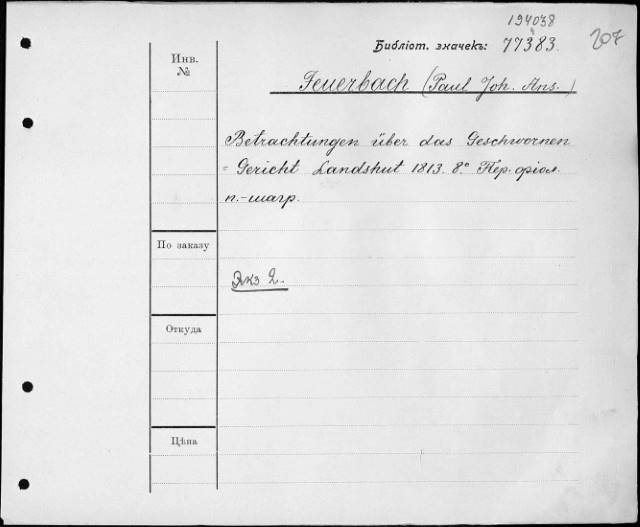 194038
207
Библіот. значекъ: 77383.
Инв.
№
Feuerbach (Paul Joh. Ans.)
Betrachtungen über das Geschwornen
= Gericht Landshut 1813. 8.° Пер. фіол.
п.-шагр.
По заказу
Экз 2.
Откуда
Цѣна